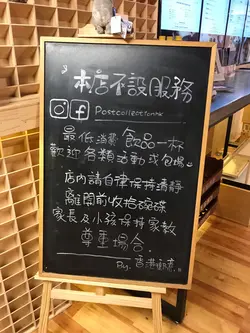 本店不設服務
Postcollectionhk
最低消費 飲品一杯
歡迎各類活動或包場
店內請自律保持清靜
離開前收拾碗碟
家長及小孩保持家教
尊重場合.
By. 香港郵嘜